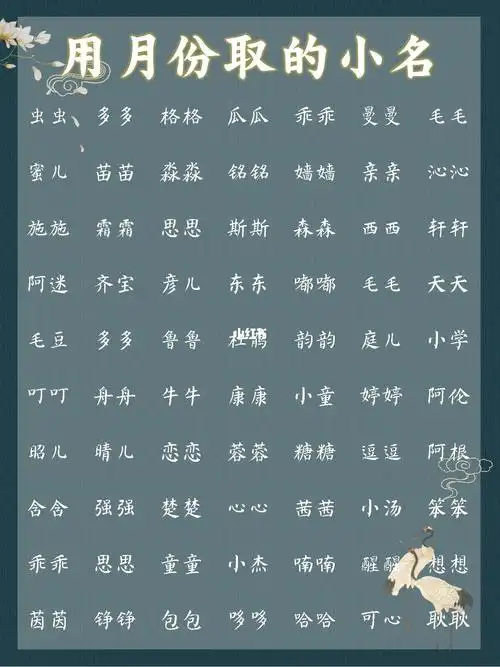 用月份取的小名
虫虫 多多 格格 瓜瓜 乖乖 曼曼 毛毛
蜜儿 苗苗 淼淼 铭铭 嫱嫱 亲亲 沁沁
施施 霜霜 思思 斯斯 森森 西西 轩轩
阿迷 齐宝 彦儿 东东 嘟嘟 毛毛 天天
毛豆 多多 鲁鲁 杜鹃 韵韵 庭儿 小学
小红书
叮叮 舟舟 牛牛 康康 小童 婷婷 阿伦
昭儿 晴儿 恋恋 蓉蓉 糖糖 逗逗 阿根
含含 强强 楚楚 心心 茜茜 小汤 笨笨
乖乖 思思 童童 小杰 喃喃 醒醒 想想
茵茵 铮铮 包包 哆哆 哈哈 可心 耿耿